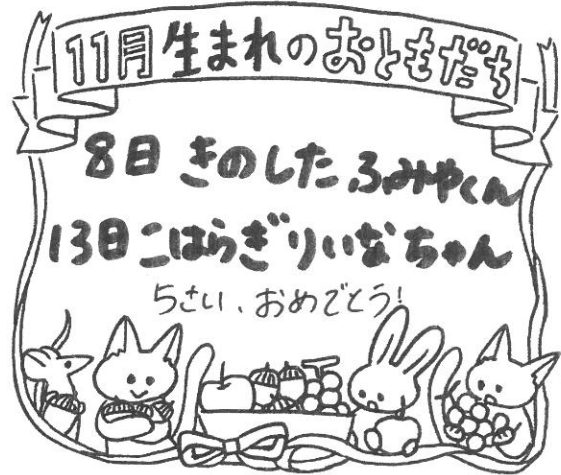 11月生まれのおともだち
8日 きのした ふみやくん
13日 こはらぎ りいなちゃん
5さい、おめでとう!